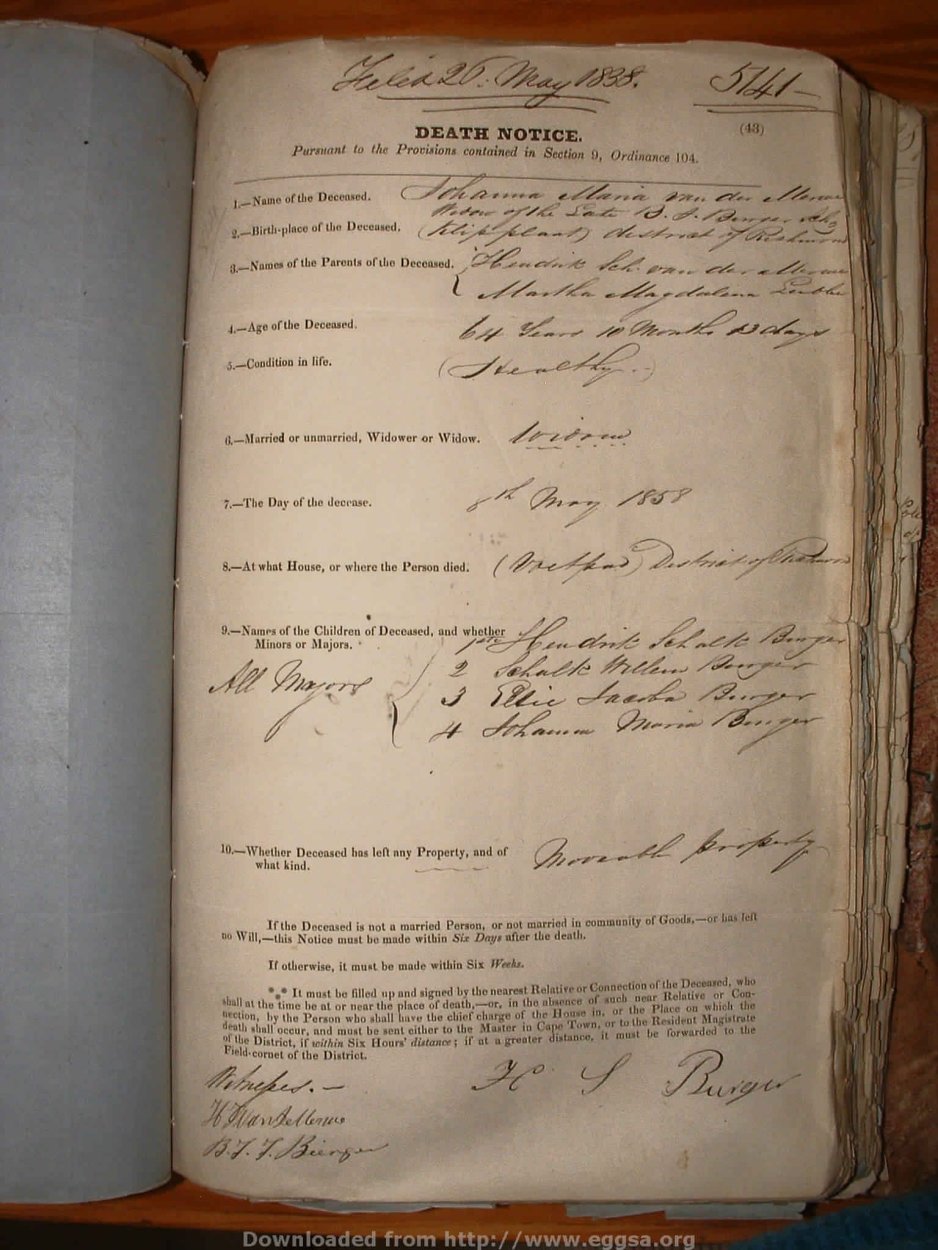 Filed 26. May 1858.
5141
(43)
DEATH NOTICE.
Pursuant to the Provisions contained in Section 9, Ordinance 104.
1.—Name of the Deceased. Johanna Maria van der Merwe
Widow of the Late B. J. Burger
2.—Birth-place of the Deceased. (Klipplaat) district of Richmond
3.—Names of the Parents of the Deceased. Hendrik Sch. van der Merwe
Martha Magdalena Lubbe
4.—Age of the Deceased. 64 Years 10 Months 23 days
5.—Condition in life. (Healthy)
6.—Married or unmarried, Widower or Widow. Widow
7.—The Day of the decease. 8th May 1858
8.—At what House, or where the Person died. District of Richmond
9.—Names of the Children of Deceased, and whether Minors or Majors. 1 Hendrik Schalk Burger
2 Schalk Willem Burger
All Majors
3 Elsie Jacoba Burger
4 Johanna Maria Burger
10.—Whether Deceased has left any Property, and of what kind. Moveable property
If the Deceased is not a married Person, or not married in community of Goods,—or has left
no Will,—this Notice must be made within Six Days after the death.
If otherwise, it must be made within Six Weeks.
It must be filled up and signed by the nearest Relative or Connection of the Deceased, who
shall at the time be at or near the place of death,—or, in the absence of such near Relative or Con-
nection, by the Person who shall have the chief charge of the House in, or the Place on which the
death shall occur, and must be sent either to the Master in Cape Town, or to the Resident Magistrate
of the District, if within Six Hours' distance; if at a greater distance, it must be forwarded to the
Field-cornet of the District.
Witnesses.— H S Burger
H van der Merwe
B. J. J. Burger
Downloaded from http://www.eggsa.org